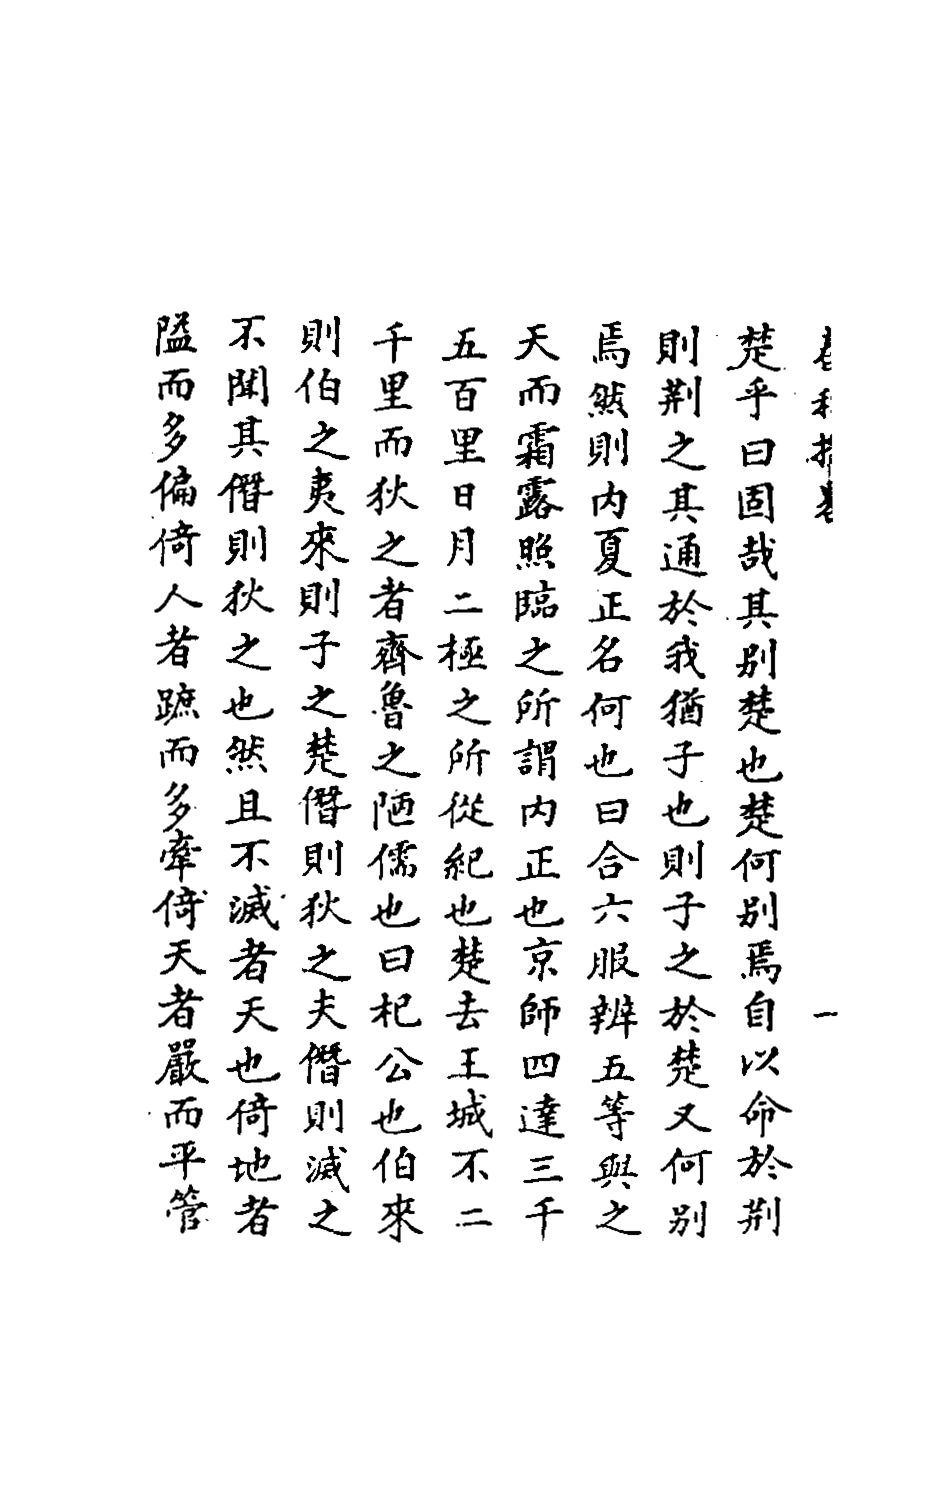 春秋揆畧 一
楚乎曰固哉其别楚也楚何别焉自以命於荆
則荆之其通於我猶子也則子之於楚又何别
焉然則内夏正名何也曰合六服辨五等與之
天而霜露照臨之所謂内正也京師四達三千
五百里日月二極之所從紀也楚去王城不二
千里而狄之者齊魯之陋儒也曰杞公也伯來
則伯之夷來則子之楚僭則狄之夫僭則滅之
不聞其僭則狄之也然且不滅者天也倚地者
隘而多偏倚人者蹠而多牽倚天者嚴而平管